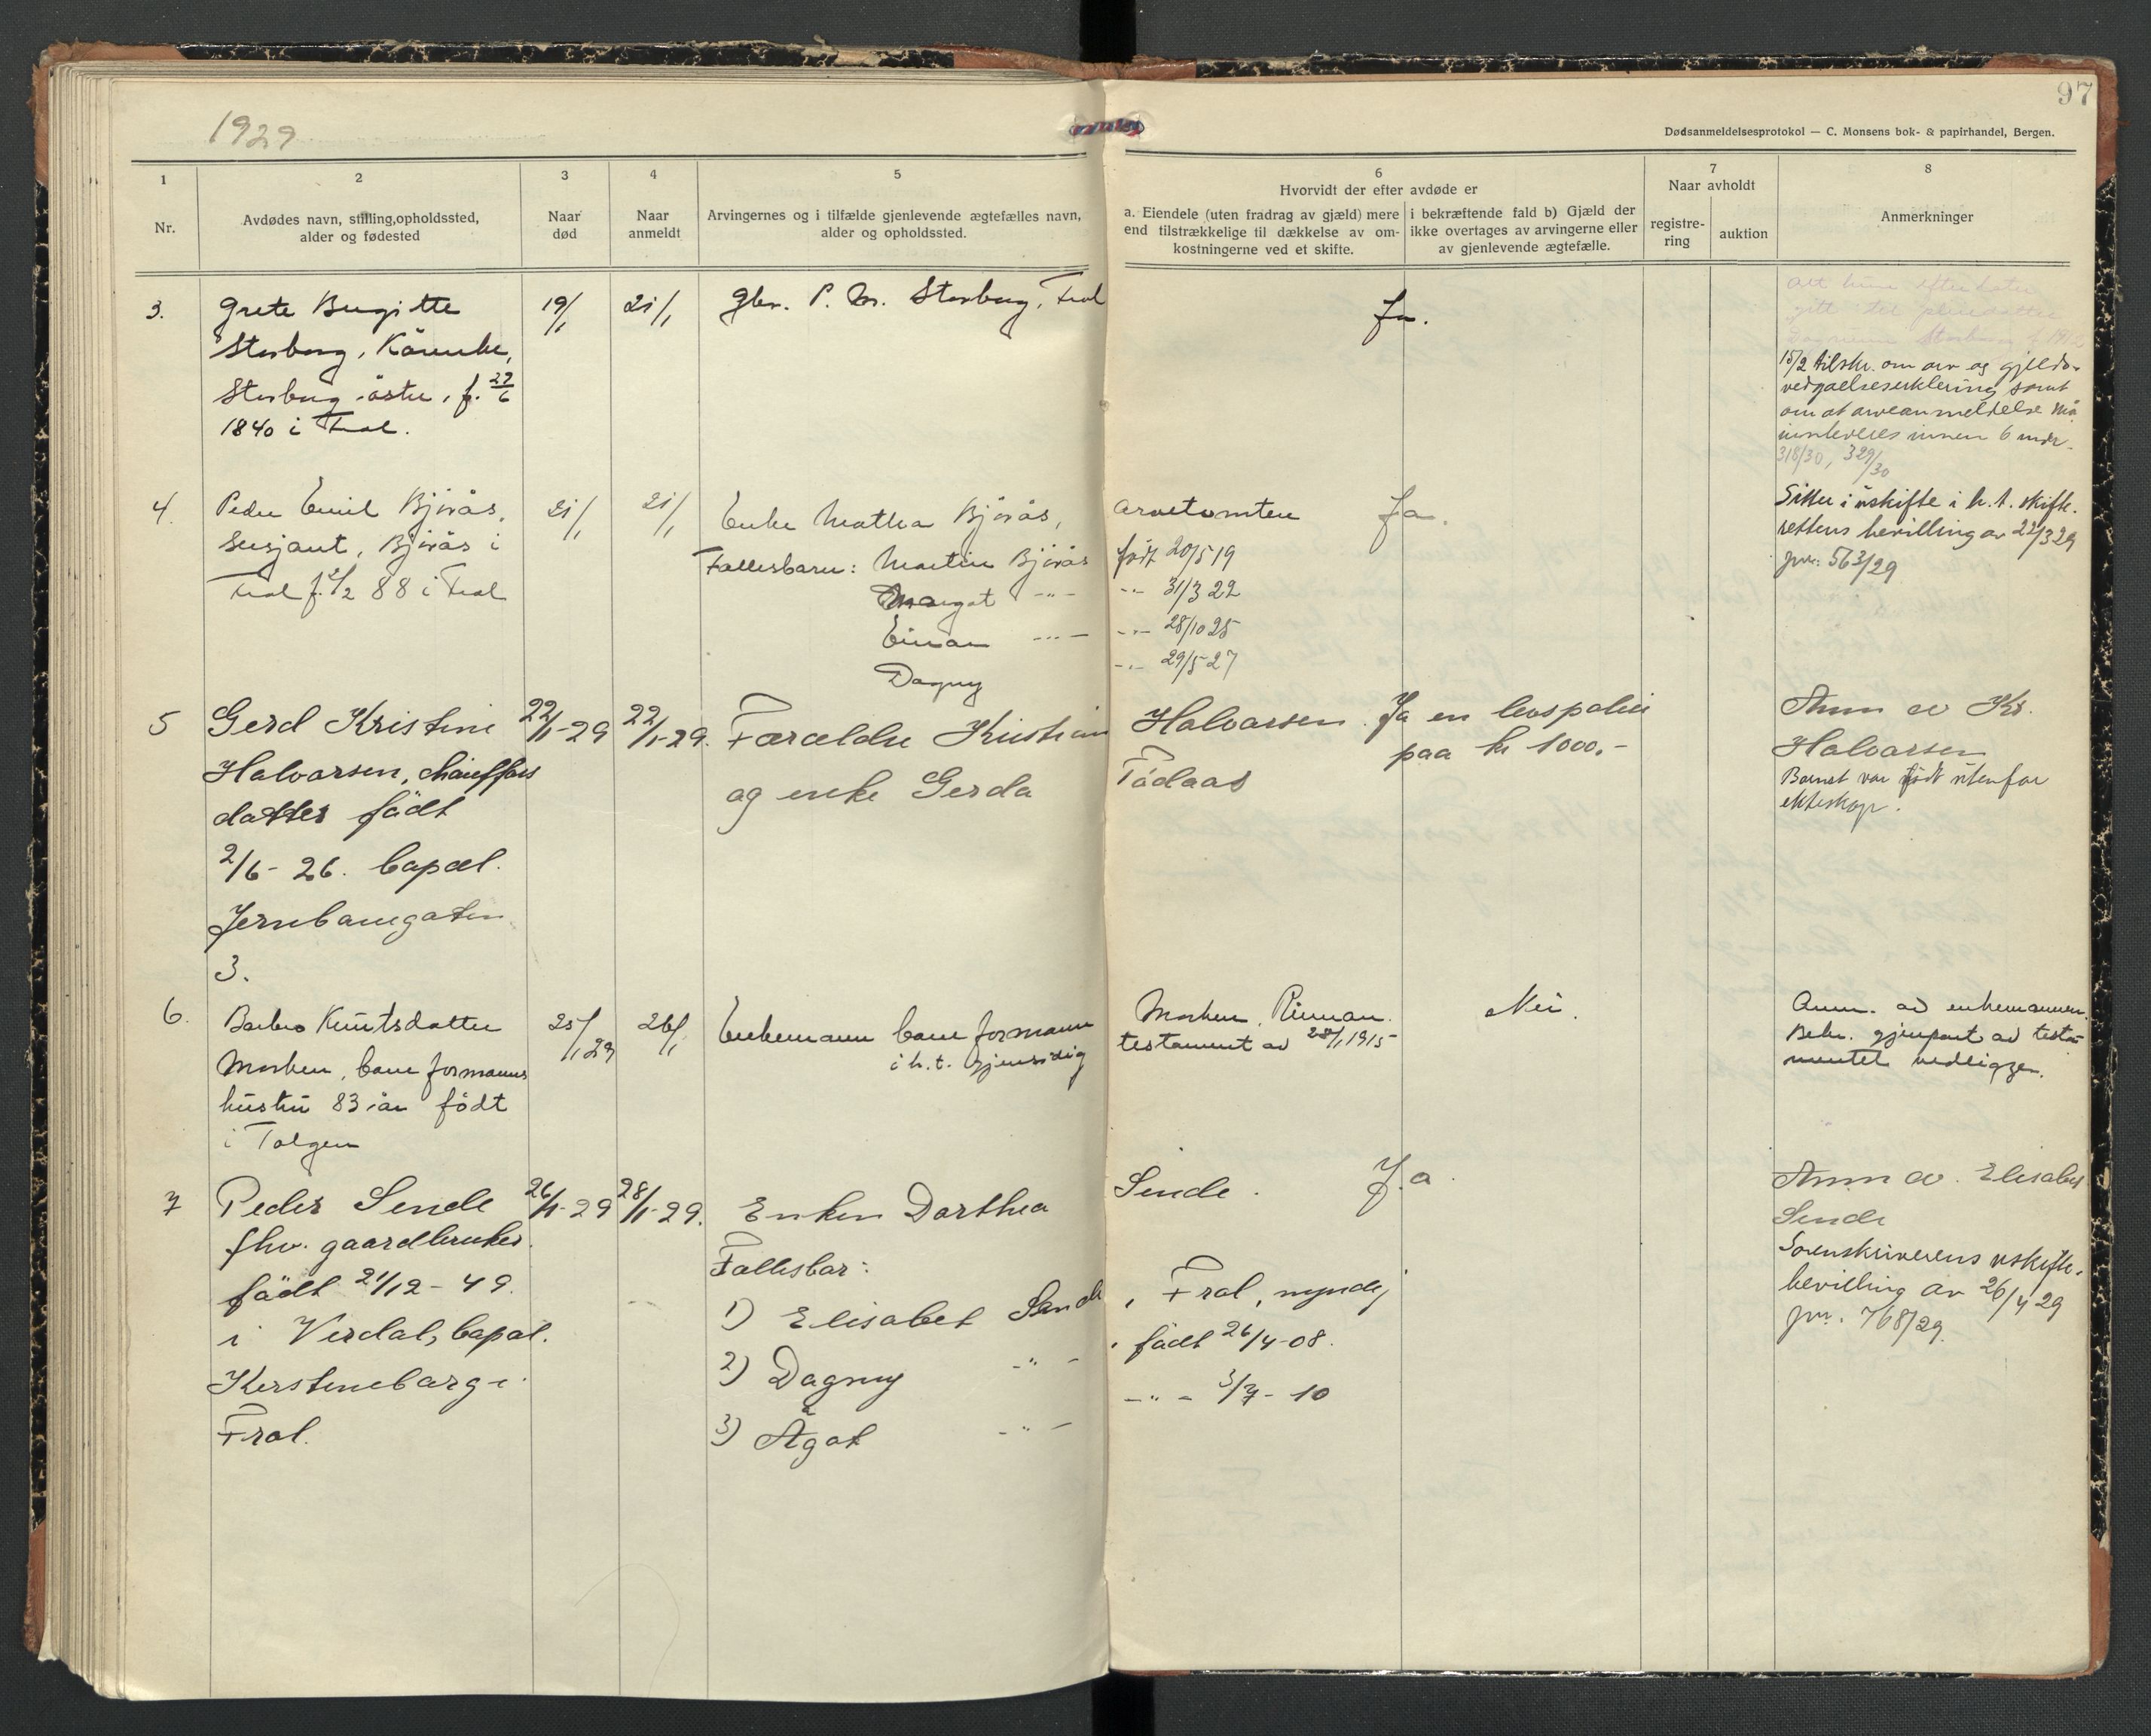 97
1929
Dødsanmeldelsesprotokol — C. Monsens bok- & papirhandel, Bergen.
1
2
3
4
5
6
7
8
Nr.
Avdødes navn, stilling, opholdssted,
alder og fødested
Naar
død
Naar
anmeldt
Arvingernes og i tilfælde gjenlevende ægtefælles navn,
alder og opholdssted.
Hvorvidt der efter avdøde er
a. Eiendele (uten fradrag av gjæld) mere
end tilstrækkelige til dækkelse av om-
kostningerne ved et skifte.
i bekræftende fald b) Gjæld der
ikke overtages av arvingerne eller
av gjenlevende ægtefælle.
Naar avholdt
registre-
ring
auktion
Anmerkninger
3.
Grete Birgitte
Storborg, Kårenke,
Storborg østre, f. 27/6
1840 i Frol.
19/1
21/1
gbr. P. M. Storborg, Frol
Ja.
15/2 tilskr. om arv og gjelds-
vedgaelseserklering samt
om at arveanmeldelse må
innleveres innen 6 mdr.
318/30, 329/30
4.
Peder Emil Bjørås,
sersjant, Bjørås i
Frol f. 2/2 88 i Frol
21/1
21/1
Enke Mathea Bjørås,
Fællesbarn: Martin Bjørås født 20/5 19
Margot -"- -"- 31/3 22
Einar -"- -"- 28/10 25
Dagny -"- 29/5 27
Ja.
Sitter i uskifte i h. t. skifte-
rettens bevilling av 22/3 29
jnr. 563/29
5
Gerd Kristine
Halvorsen, chaufførs
datter født
2/6-26. bopæl.
Jernbanegaten
3.
22/1-29
22/1-29.
Forældre Kristian Halvorsen.
og enke Gerda
Ja en livspolice
paa kr 1000.-
Anm av Kr.
Halvorsen
Barnet var født utenfor
ekteskap.
6.
Barbro Knutsdatter
Morken, baneformanns
hustru 83 år født
i Tolgen
25/1 29
26/1
Enkemann baneformann Morken, Rinnan.
i h. t. gjensidig testament av 28/1 1915
Nei.
Anm. av enkemannen.
Bekr. gjenpart av testa-
mentet vedligger.
7
Peder Sende
fhv. gaardbruker.
født 21/12-49.
i Verdal, bopæl.
Kirstineborg i
Frol.
26/1-29
28/1-29.
Enken Dorthea Sende.
Fællesbar:
1) Elisabet Sende, Frol, myndig
2) Dagny -"- født 26/4-08.
3) Ågot -"- -"- 3/7-10
Ja.
Anm av. Elisabet
Sende
Sorenskriverens uskifte-
bevilling av 26/4 29
jnr. 768/29.